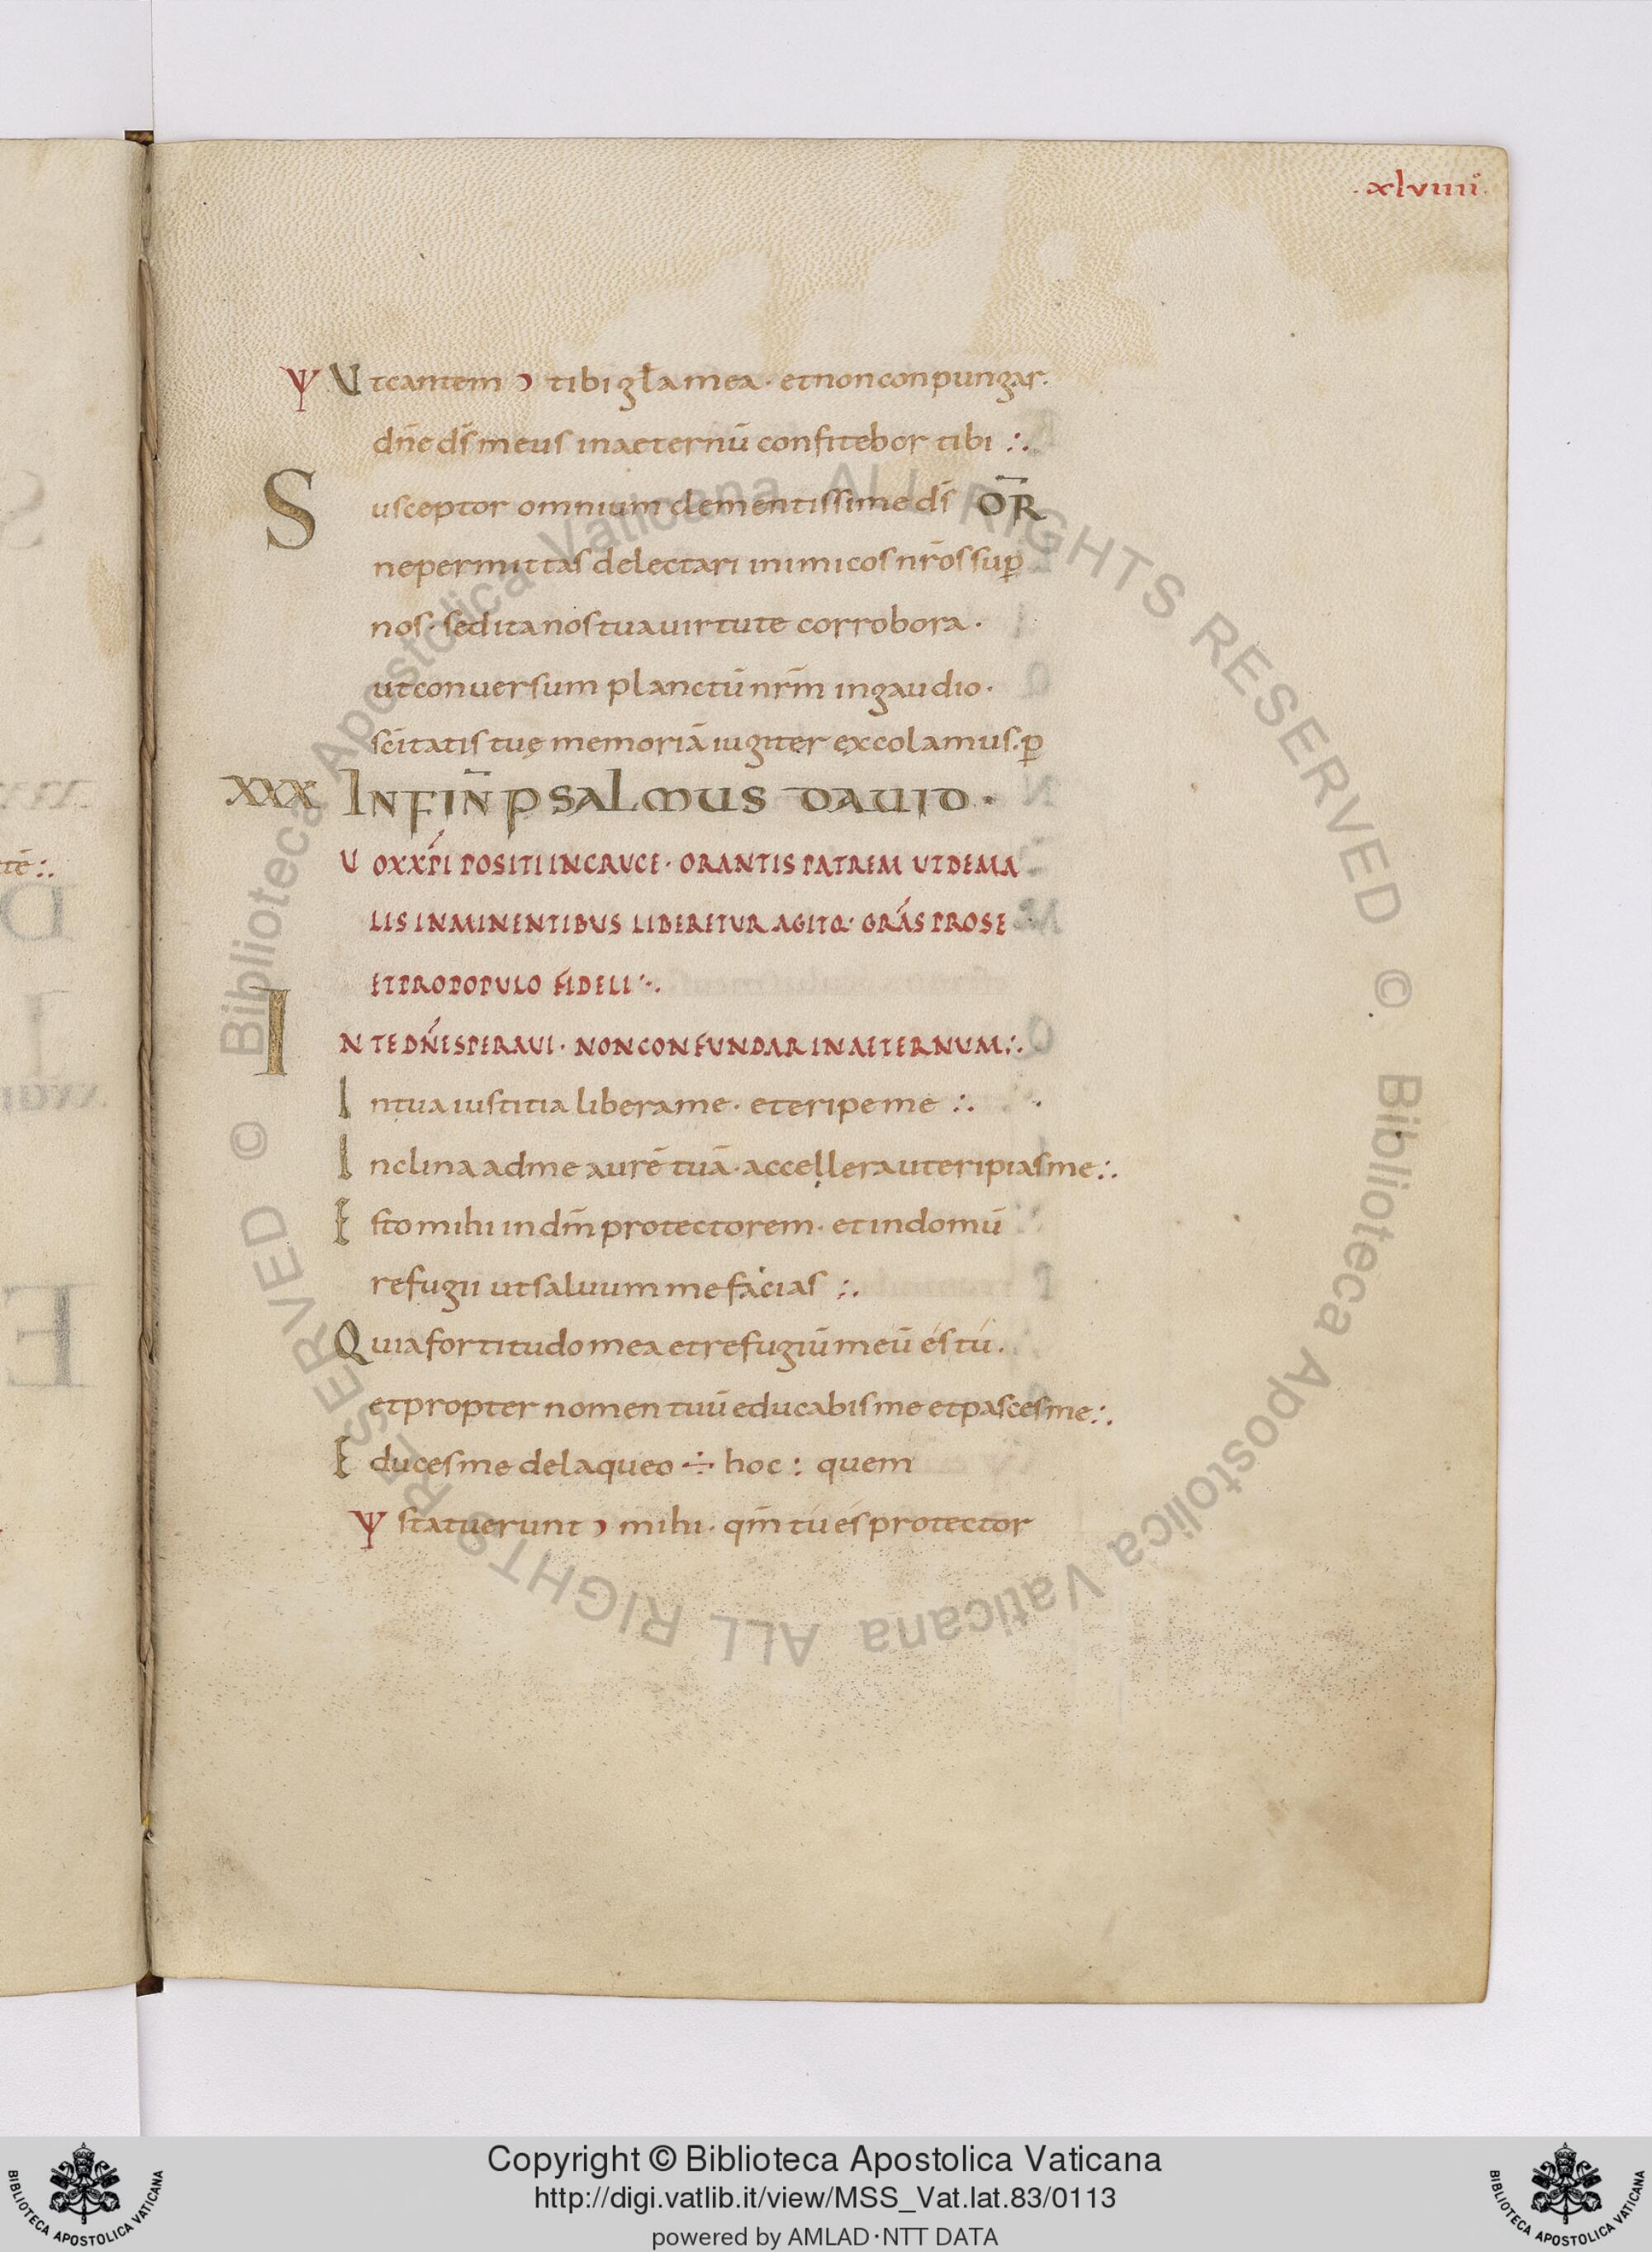 .xlviiii.
Ψ Ut cantem ͻ tibi gła mea · et non conpungar.
dn̄e ds̄ meus in aeternū confitebor tibi :.
Susceptor omnium clementissime ds̄ ŌR
ne permittas delectari inimicos nr̄os sup̄
nos · sed ita nos tua uirtute corrobora .
ut conuersum planctū nr̄m in gaudio .
sc̄itatis tuę memoriā iugiter excolamus. p̄
XXX IN FIN̄ PSALMUS DAUID .
UOX XP̄I POSITI IN CRUCE · ORANTIS PATREM UT DE MA
LIS INMINENTIBUS LIBERETUR AGITQ· GRĀS PRO SE
ET PRO POPULO FIDELI :.
IN TE DN̄E SPERAUI · NON CONFUNDAR IN AETERNUM :.
In tua iustitia libera me · et eripe me :.
Inclina ad me aurē tuā · accellera ut eripias me :.
Esto mihi in dm̄ protectorem · et in domū
refugii ut saluum me facias :.
Quia fortitudo mea et refugiū meū és tú .
et propter nomen tuū educabis me et pasces me :.
Educes me de laqueo ÷ hoc : quem
Ψ statuerunt ͻ mihi · qm̄ tú és protector
Copyright © Biblioteca Apostolica Vaticana
http://digi.vatlib.it/view/MSS_Vat.lat.83/0113
powered by AMLAD·NTT DATA
BIBLIOTECA APOSTOLICA VATICANA
BIBLIOTECA APOSTOLICA VATICANA
© Biblioteca Apostolica Vaticana ALL RIGHTS RESERVED
© Biblioteca Apostolica Vaticana ALL RIGHTS RESERVED